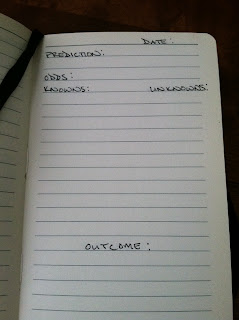 DATE:
PREDICTION:
ODDS:
KNOWNS: UNKNOWNS:
OUTCOME: